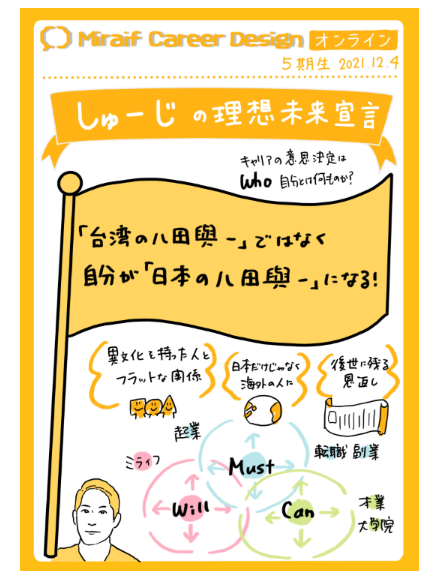 Miraif Career Design オンライン
5期生 2021.12.4
しゅーじ の理想未来宣言
キャリアの意思決定は
Who 自分とは何ものか?
「台湾の八田與一」ではなく
自分が「日本の八田與一」になる!
異文化を持った人と
フラットな関係
日本だけじゃなく
海外の人に
後世に残る
見直し
起業
ミライフ
Must
転職 副業
Will
Can
本業
大学院